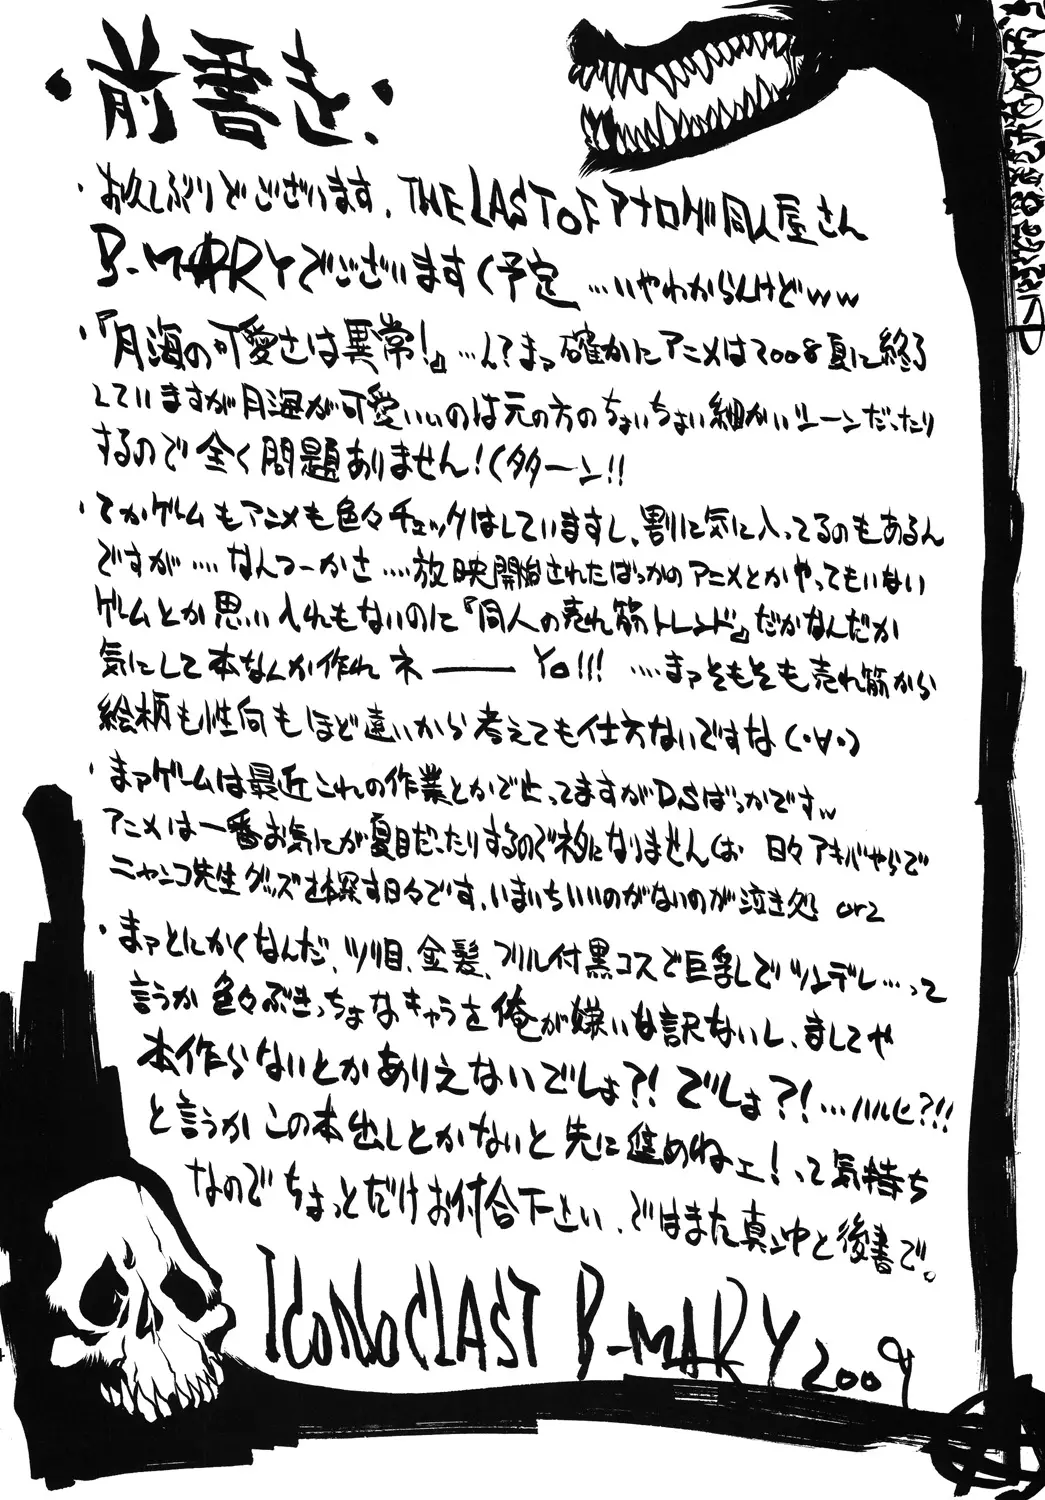 ・前書き・
・お久しぶりでございます、THE LAST OF アナログ同人屋さん
B-MARYでございます(予定 …いやわからんけどww
・『月海の可愛さは異常!』…ん?まァ確かにアニメは2008夏に終了
していますが月海が可愛いいのは元の方のちょいちょい細かいシーンだったり
するので全く問題ありません!(タターン!!
・てかゲームもアニメも色々チェックはしていますし、割に気に入ってるのもあるん
ですが‥‥なんつーかさ‥‥放映開始されたばっかのアニメとかやってもいない
ゲームとか思い入れもないのに『同人の売れ筋トレンド』だかなんだか
気にして本なんか作れネ――Yo!!! ‥‥まァそもそも売れ筋から
絵柄も性向もほど遠いから考えても仕方ないですな(・∀・)
・まァゲームは最近これの作業とかで止ってますがDSばっかですw
アニメは一番お気にが夏目だったりするのでネタになりませんは 日々アキバやらで
ニャンコ先生グッズを探す日々です、いまいちいいのがないのが泣き処 orz
・まァとにかくなんだ、ツリ目、金髪、フリル付黒コスで巨乳でツンデレ…って
言うか色々ぶきっちょなキャラを俺が嫌いな訳ないし、ましてや
本作らないとかありえないでしょ?!でしょ?!…ハルヒ?!!
と言うかこの本出しとかないと先に進めねェ!って気持ち
なのでちょっとだけお付合下さい、ではまた真ン中と後書で。
ICONOCLAST B-MARY 2009